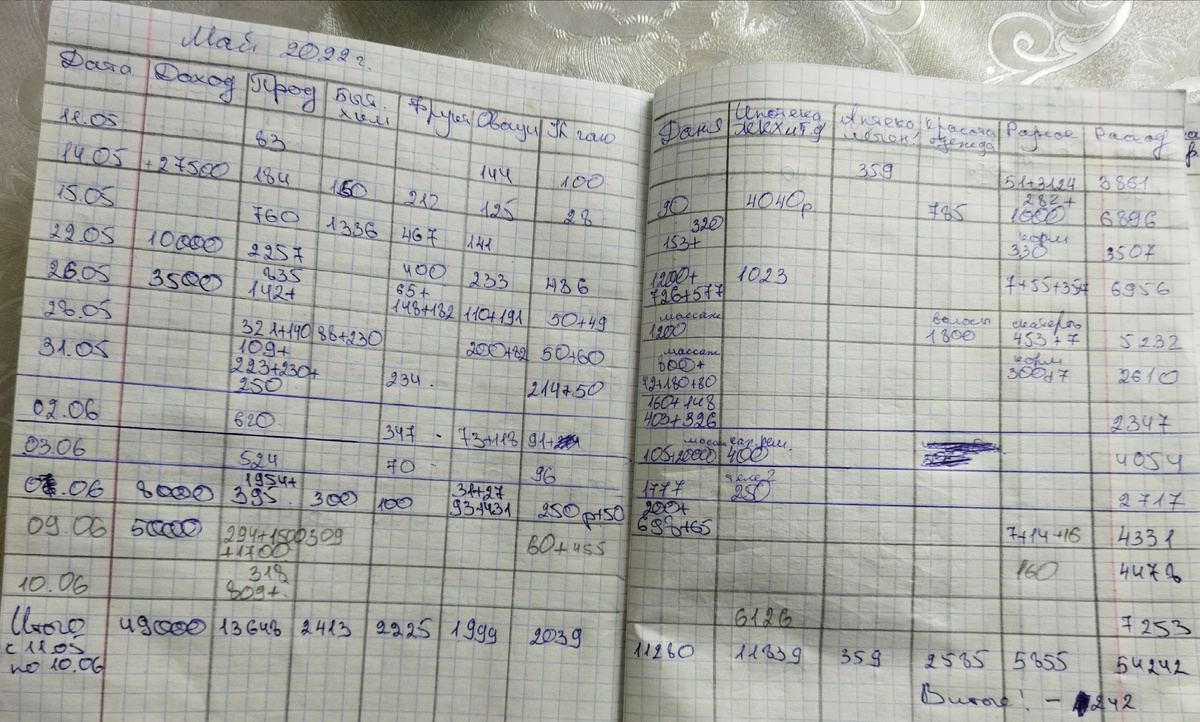 Май 2022 г.
Дата Доход Прод Быт. хим Фрукт Овощи К чаю
11.05 83 144 100
14.05 +27500 184 150 212 125 28
15.05 760 1336 467 141
22.05 10000 2257 400 233 436
26.05 3500 835
142+ 65+
148+182 110+191 50+49
28.05 321+140 88+230 200+82 50+60
31.05 109+
223+230+
250 234 214+50
02.06 620 347 73+118 91+
03.06 524 70 96
.06 8000 1954+
395 300 100 31+27
93+431 250р+50
09.06 5000 294+1500
+1700 309 60+455
10.06 318
809+
Итого
с 11.05
по 10.06 49000 13648 2413 2225 1999 2039
Даня Ипотека
ЖКХ Аптека Красота
одежда Разное Расход
359 51+3124 3861
90 4040р 785 282+
1000 6896
320
153+ корм
330 3507
1200+
726+577 1023 7+55+357 6956
массаж
1200 волосы
1800 скатерть
453+7 5232
массаж
800+
42+180+80 корм
300+7 2610
160+148
403+326 2347
массаж
кап.рем.
400 4054
1777 250 2717
200+
698+65 7+14+16 4331
160 4478
6126 7253
11280 11839 359 2585 5855 54242
В итоге! - 242